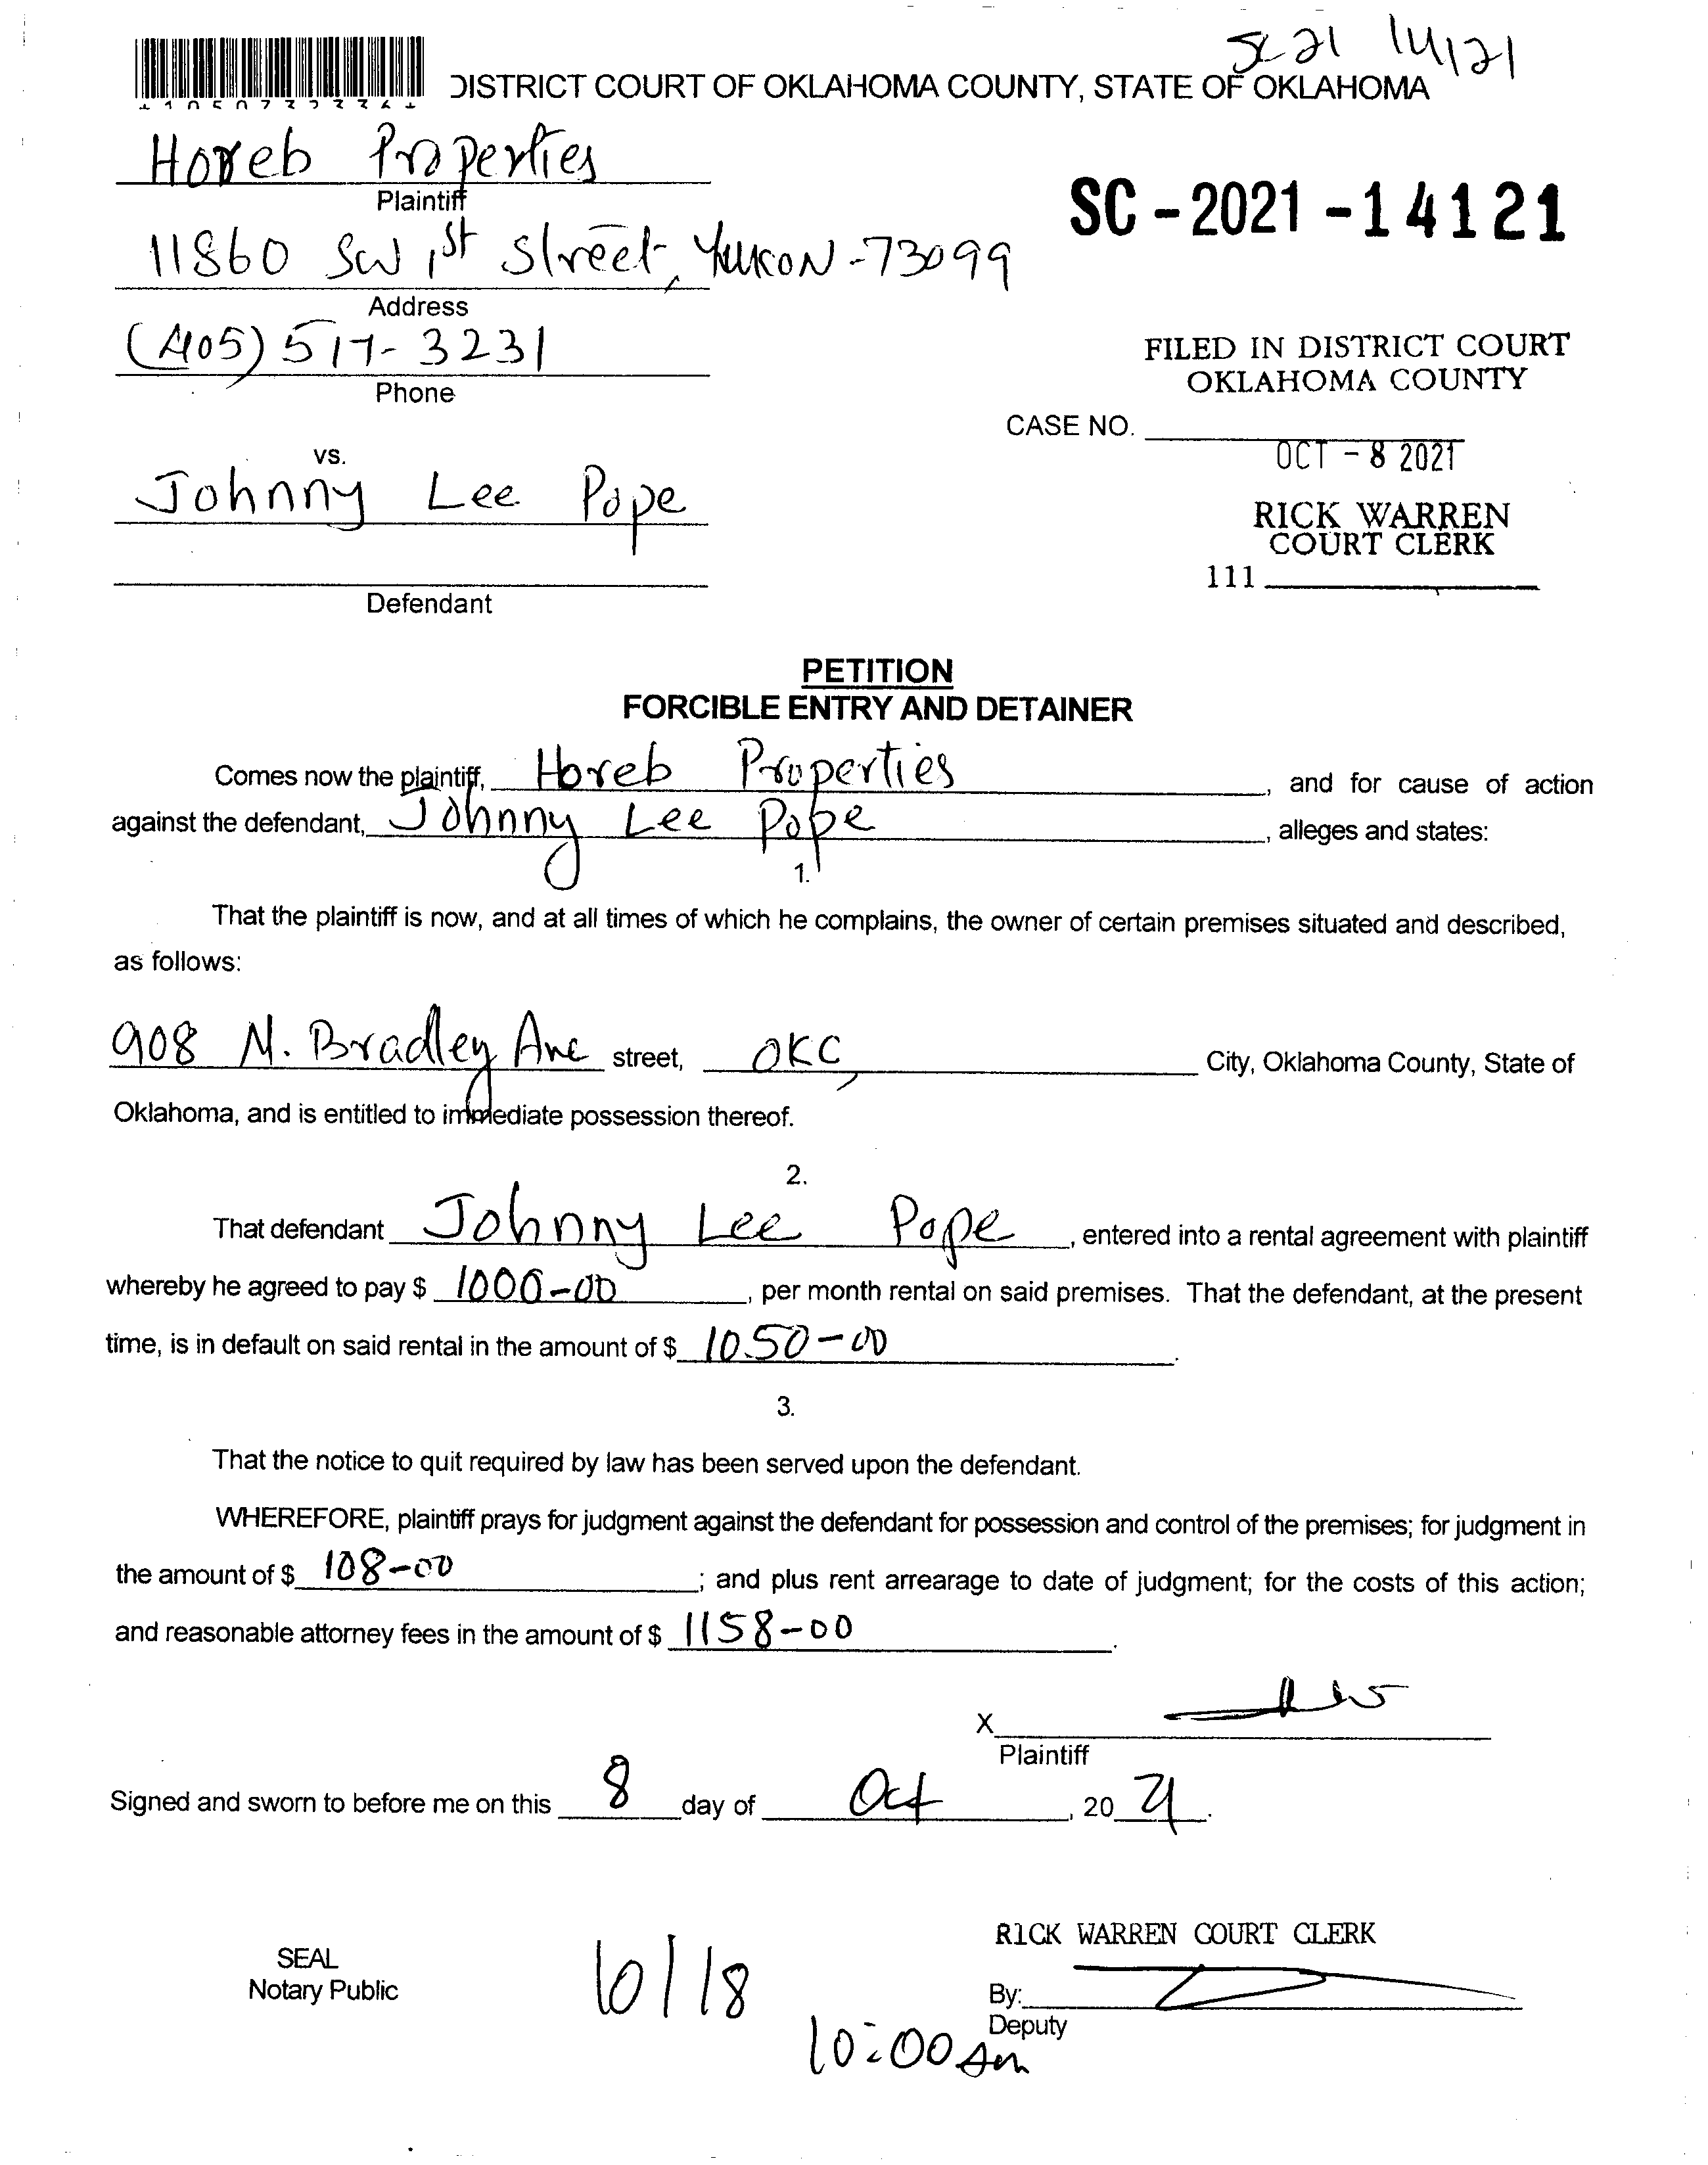 SC 21 14121
DISTRICT COURT OF OKLAHOMA COUNTY, STATE OF OKLAHOMA
Horeb Properties
Plaintiff
SC - 2021 - 14121
11860 SW 1st Street, Yukon - 73099
Address
(405) 517-3231
Phone
FILED IN DISTRICT COURT
OKLAHOMA COUNTY
CASE NO.
OCT - 8 2021
vs.
Johnny Lee Pope
RICK WARREN
COURT CLERK
111
Defendant
PETITION
FORCIBLE ENTRY AND DETAINER
Comes now the plaintiff, Horeb Properties, and for cause of action
against the defendant, Johnny Lee Pope, alleges and states:
1.
That the plaintiff is now, and at all times of which he complains, the owner of certain premises situated and described,
as follows:
908 N. Bradley Ave street, OKC, City, Oklahoma County, State of
Oklahoma, and is entitled to immediate possession thereof.
2.
That defendant Johnny Lee Pope, entered into a rental agreement with plaintiff
whereby he agreed to pay $ 1000-00, per month rental on said premises. That the defendant, at the present
time, is in default on said rental in the amount of $ 1050-00.
3.
That the notice to quit required by law has been served upon the defendant.
WHEREFORE, plaintiff prays for judgment against the defendant for possession and control of the premises; for judgment in
the amount of $ 108-00; and plus rent arrearage to date of judgment; for the costs of this action;
and reasonable attorney fees in the amount of $ 1158-00.
X
Plaintiff
Signed and sworn to before me on this 8 day of Oct, 20 21.
RICK WARREN COURT CLERK
SEAL
Notary Public
10/18
By:
Deputy
10:00 am